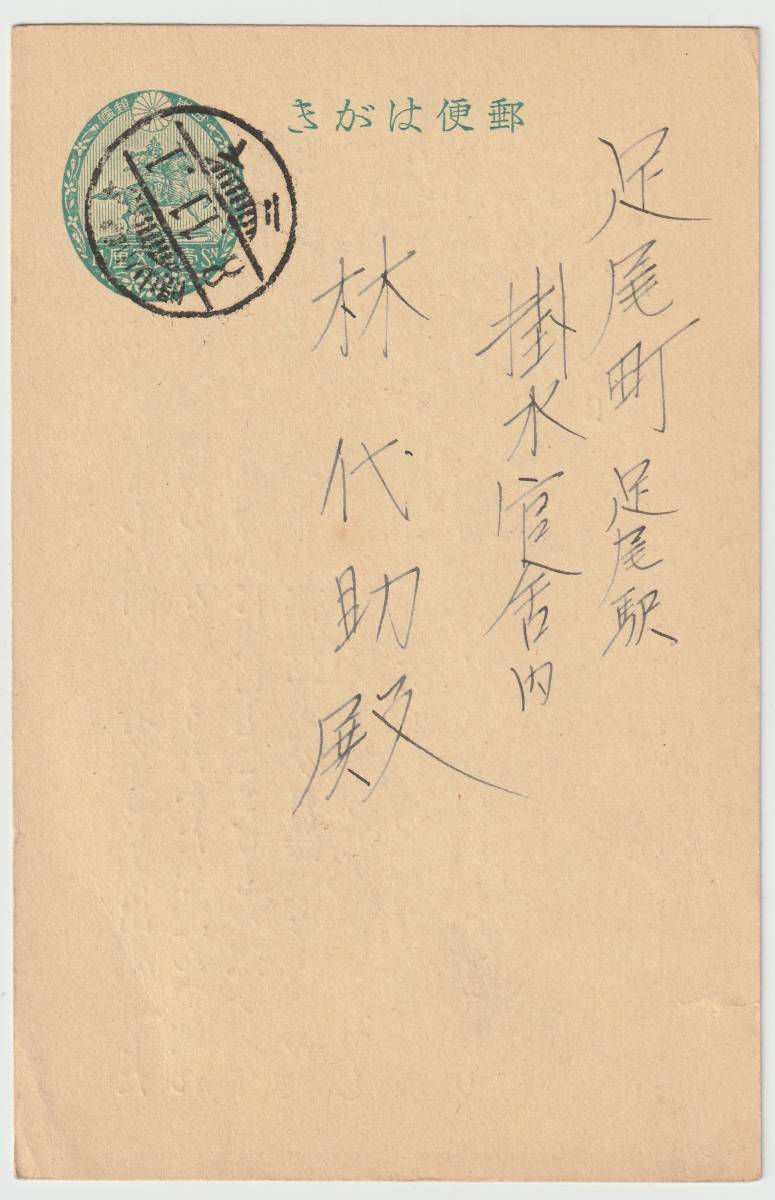 郵便はがき
足尾町 足尾駅
掛水官舎内
林代助殿